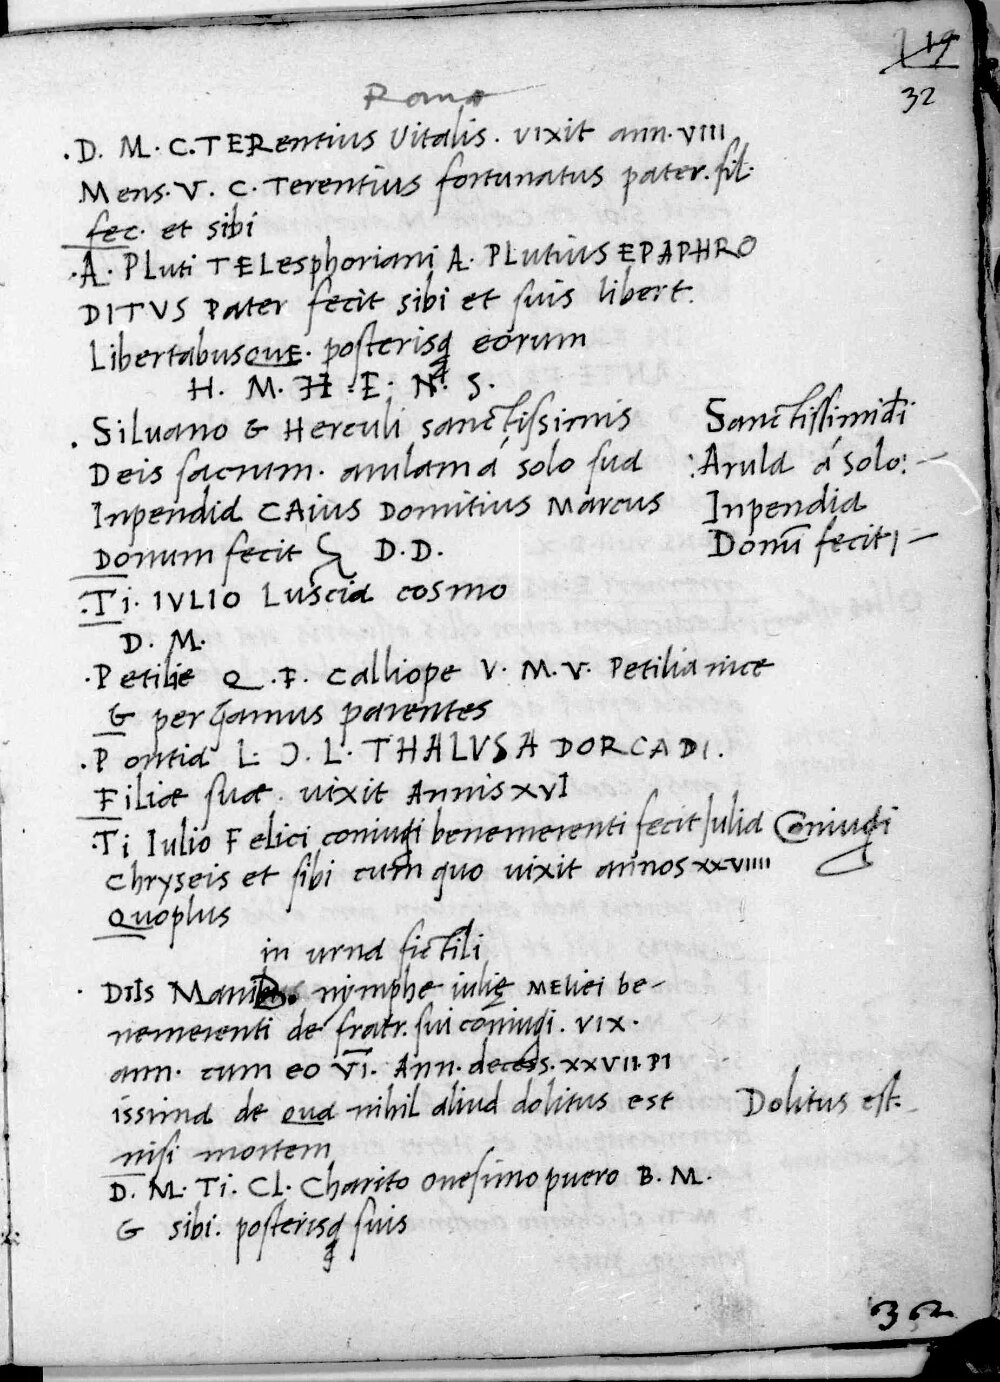 19
32
Roma
.D. M. C. TERentius Vitalis. vixit ann. VIII
Mens. V. C. Terentius fortunatus pater. fil.
fec. et sibi
.A. PLuti TELesphoriani A. PLutius EPAPHRO
DITVS Pater fecit sibi et suis libert.
LibertabusQUE. posterisq eorum
H. M. H. E. N. S.
. SiLuano & Herculi sanctissimis
Deis sacrum. arulam á solo sua
Inpendia CAius Domitius Marcus
Donum fecit D.D.
Sanctissimidi
:Arula á solo:
Inpendia
Donū fecit
.Ti. IVLIO Luscia cosmo
D. M.
.Petilie Q. F. Calliope V. M. V. Petilia nice
& pergamus parentes
.Pontia L. Ɔ. L. THALVSA DORCADI.
Filiæ suæ. vixit Annis XVI
.Ti Iulio Felici coniugi benemerenti fecit Julia Coniugi
Chryseis et sibi cum quo vixit annos XXVIIII
Quoplus
in urna fictili
. DIIS Manibus. nymphe iulię MELiei be-
nemerenti de fratr. sui coniugi. VIX.
ann. cum eo VI. Ann. decess. XXVII. PI
issima de qua nihil aliud dolitus est Dolitus est.
nisi mortem
D. M. Ti. Cl. Charito onesimo puero B. M.
& sibi. posterisq suis
32